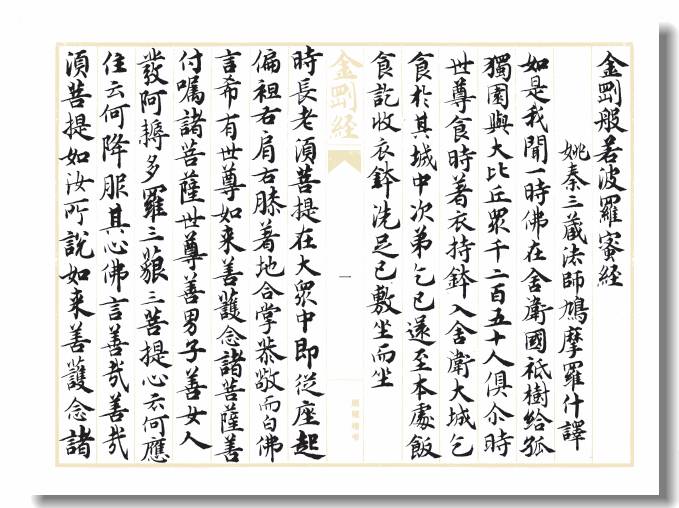 金剛般若波羅蜜經
姚秦三藏法師鳩摩羅什譯
如是我聞一時佛在舍衛國祇樹給孤
獨園與大比丘眾千二百五十人俱尒時
世尊食時著衣持鉢入舍衛大城乞
食於其城中次弟乞已還至本處飯
食訖收衣鉢洗足已敷坐而坐
金剛經
一
時長老須菩提在大眾中即從座起
偏袒右肩右膝著地合掌恭敬而白佛
言希有世尊如来善護念諸菩薩善
付嘱諸菩薩世尊善男子善女人
發阿耨多羅三藐三菩提心云何應
住云何降服其心佛言善哉善哉
須菩提如汝所說如来善護念諸